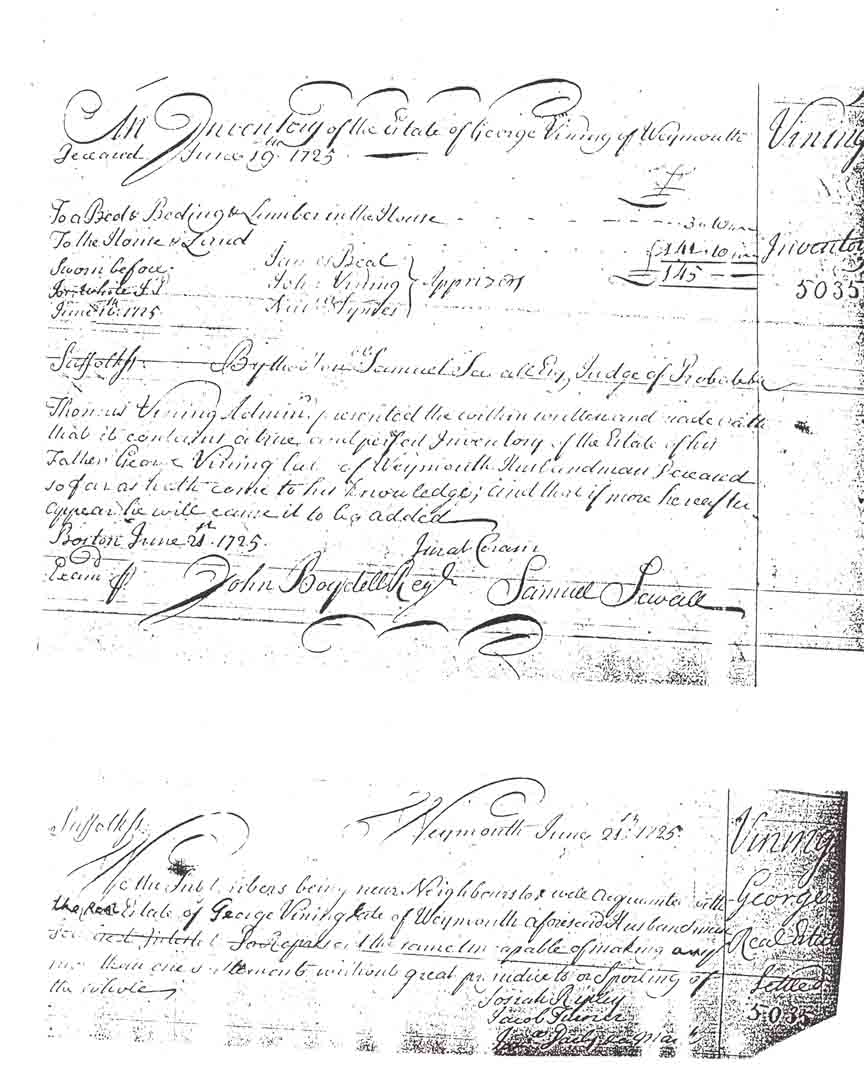 An Inventory of the Estate of George Vining of Weymouth
Deceased June 19th 1725
£
To a Bed & Beding & Lumber in the House - - - - - - 3
To the House & Land £141 .. 10
145
Sworn before
June 16th 1725
James Beal
John Vining
Apprizers
Vining
Inventory
5035
Suffolk ss. By the Hon.ble Samuel Sewall Esq, Judge of Probate &c
Thomas Vining Admin.r presented the within written and made oath
that it contains a true and perfect Inventory of the Estate of his
Father George Vining late of Weymouth Husbandman Deceased
so far as hath come to his Knowledge; and that if more hereafter
appear he will cause it to be added
Boston June 21st 1725. Jurat Coram
Exam.d John Boydell Reg.r Samuel Sewall
Suffolk ss. Weymouth June 21st: 1725
We the Subscribers being near Neighbours to & well acquainted with
the Real Estate of George Vining Late of Weymouth aforesaid Husbandman
the same Uncapable of making any
more than one settlement without great prejudice to or Spoiling of
the whole
Josiah Ripley
Jacob
Vining
George
Real Estate
Settled
5035